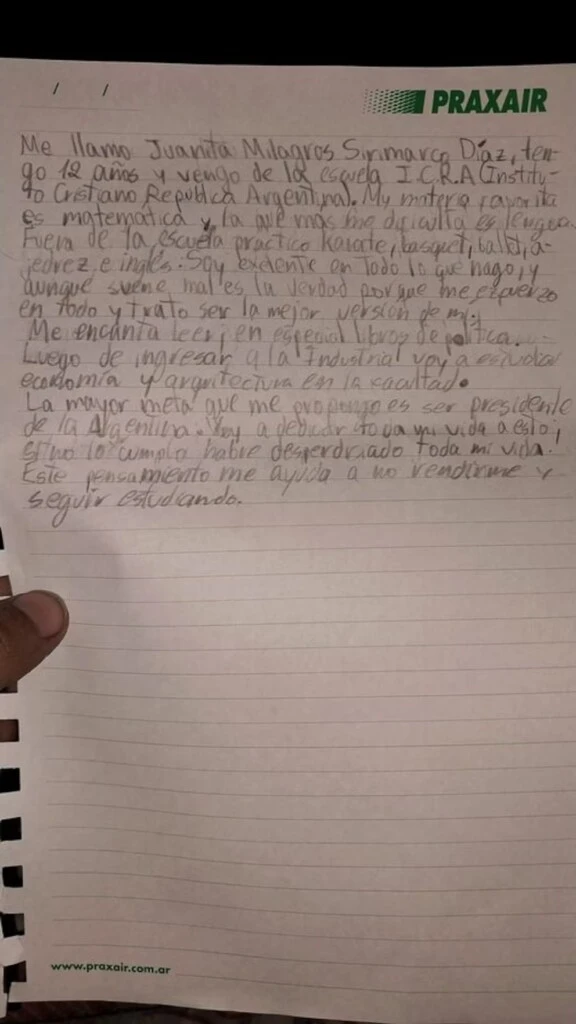 / /
PRAXAIR
Me llamo Juanita Milagros Sirimarco Díaz, ten-
go 12 años y vengo de la escuela I.C.R.A (Institu-
to Cristiano República Argentina). My materia favorita
es matemática y la que más me dificulta es lengua.
Fuera de la escuela practico karate, basquet, ballet, a-
jedrez e inglés. Soy exelente en todo lo que hago, y
aunque suene mal es la verdad porque me esfuerzo
en todo y trato ser la mejor versión de mi.
Me encanta leer, en especial libros de política.
Luego de ingresar a la Industrial voy a estudiar
economía y arquitectura en la facultad.
La mayor meta que me propongo es ser presidente
de la Argentina. Voy a dedicar toda mi vida a esto,
si no lo cumplo habre desperdiciado toda mi vida.
Este pensamiento me ayuda a no rendirme y
seguir estudiando.
www.praxair.com.ar